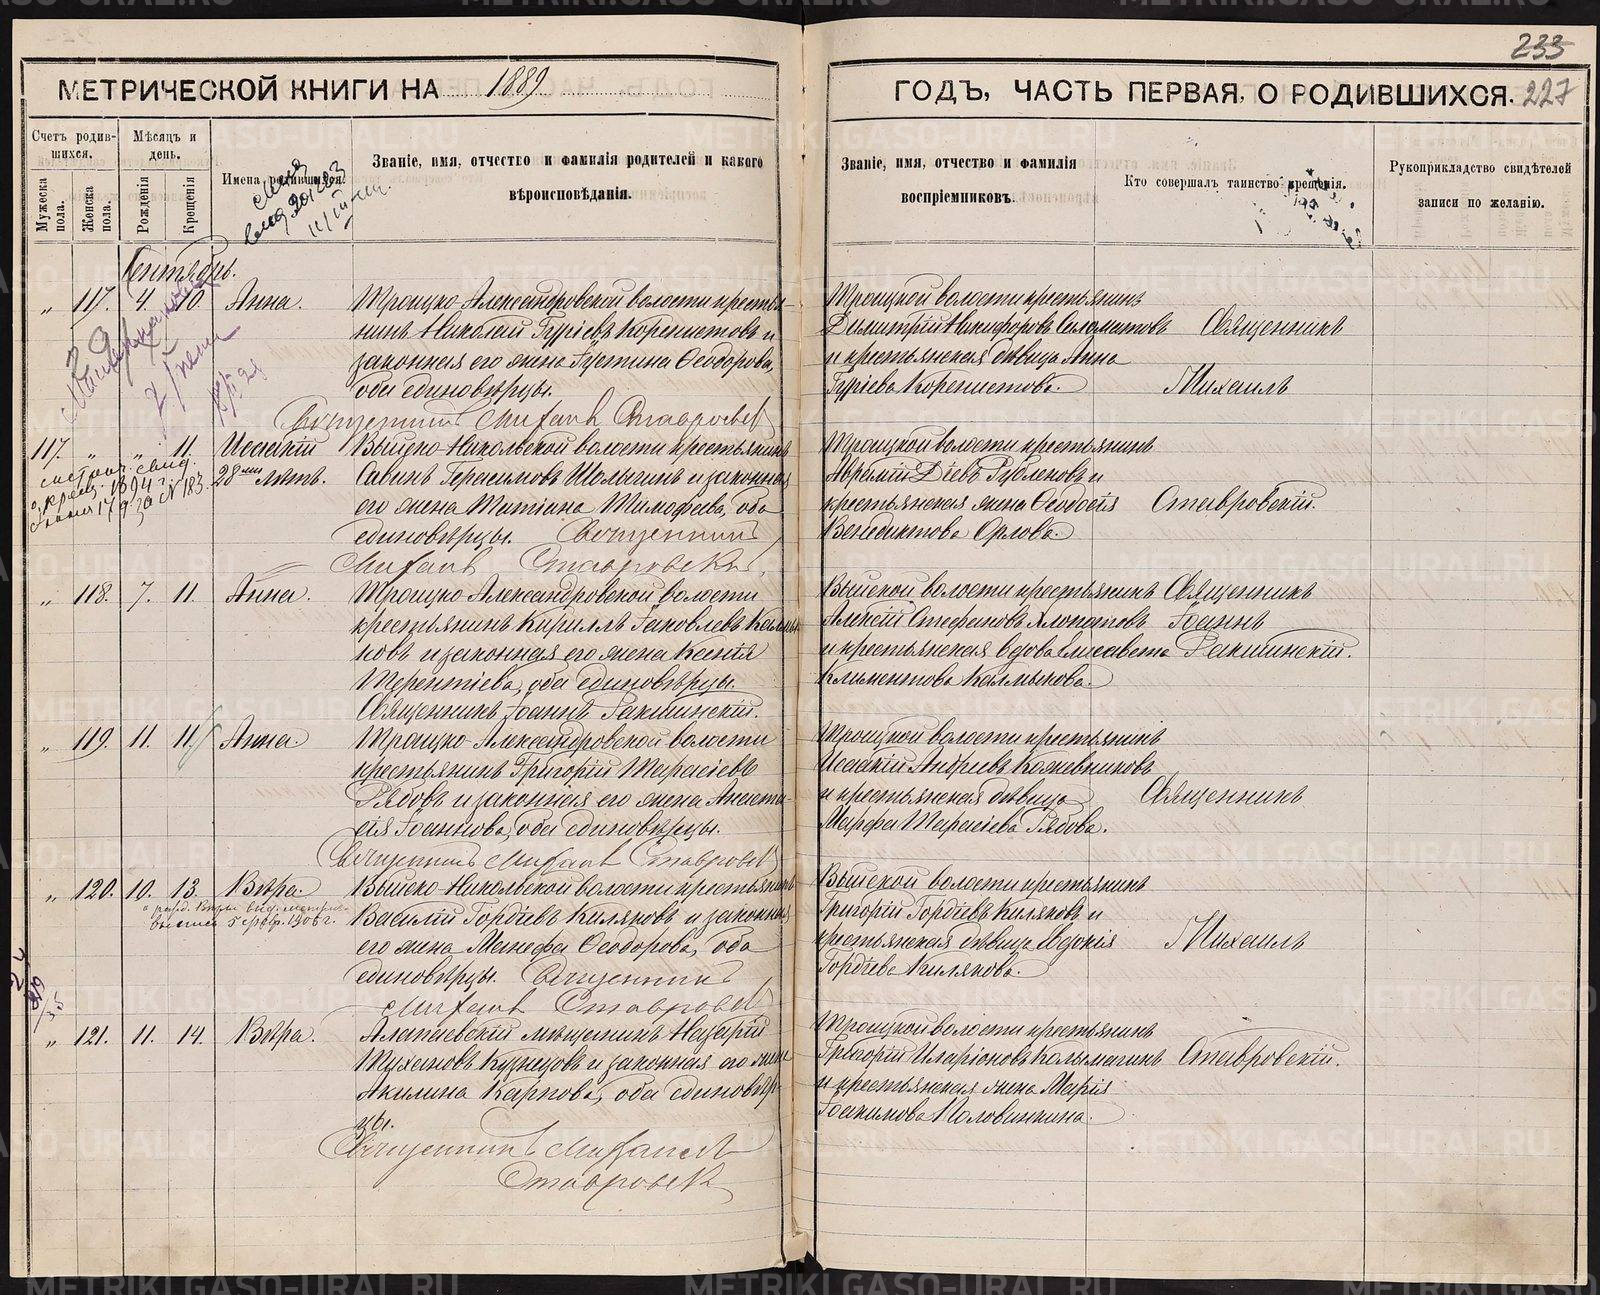 233
МЕТРИЧЕСКОЙ КНИГИ НА 1889
ГОДЪ, ЧАСТЬ ПЕРВАЯ, О РОДИВШИХСЯ. 227
Счетъ родив-
шихся.
Мужеска пола.
Женска пола.
Мѣсяцъ и
день.
Рожденія
Крещенія
Имена родившихся.
Званіе, имя, отчество и фамилія родителей и какого
вѣроисповѣданія.
Званіе, имя, отчество и фамилія
воспріемниковъ.
Кто совершалъ таинство крещенія.
Рукоприкладство свидѣтелей
записи по желанію.
Сентябрь.
„ 117. 4. 10. Анна.
Троицко-Александровской волости крестья-
нинъ Николай Гуріевъ Коренистовъ и
законная его жена Іустина Ѳеодорова,
оба единовѣрцы.
Священникъ Михаилъ Ставровскій
Троицкой волости крестьянинъ
Димитрій Никифоровъ Саламатовъ
и крестьянская дѣвица Анна
Гуріева Коренистова.
Священникъ
Михаилъ
117. „ „ 11. Исаакій
28ми лѣтъ.
Выйско-Никольской волости крестьянинъ
Савинъ Герасимовъ Шалыгинъ и законная
его жена Татіана Тимофеева, оба
единовѣрцы. Священникъ
Михаилъ Ставровскій.
Троицкой волости крестьянинъ
Аврамій Діевъ Рубленовъ и
крестьянская жена Ѳеодосія
Венедиктова Орлова.
Ставровскій.
„ 118. 7. 11. Анна.
Троицко-Александровской волости
крестьянинъ Кириллъ Іаковлевъ Калмы-
ковъ и законная его жена Ксенія
Терентіева, оба единовѣрцы.
Священникъ Іоаннъ Ракшинскій.
Выйской волости крестьянинъ
Алексій Стефановъ Хлопотовъ
и крестьянская вдова Елисавета
Климентова Калмыкова.
Священникъ
Іоаннъ
Ракшинскій.
„ 119. 11. 11. Анна.
Троицко-Александровской волости
крестьянинъ Григорій Тарасіевъ
Рябовъ и законная его жена Анаста-
сія Іоаннова, оба единовѣрцы.
Священникъ Михаилъ Ставровскій
Троицкой волости крестьянинъ
Исаакій Андреевъ Кожевниковъ
и крестьянская дѣвица
Марфа Тарасіева Рябова.
Священникъ
„ 120. 10. 13. Вѣра.
5 февр. 1906 г.
Выйско-Никольской волости крестьянинъ
Василій Гордіевъ Киляковъ и законная
его жена Манефа Ѳеодорова, оба
единовѣрцы. Священникъ
Михаилъ Ставровскій
Выйской волости крестьянинъ
Григорій Гордіевъ Киляковъ и
крестьянская дѣвица Евдокія
Гордіева Килякова.
Михаилъ
„ 121. 11. 14. Вѣра.
Алапаевскій мѣщанинъ Назарій
Кузнецовъ и законная его жена
Акилина Карпова, оба единовѣр-
цы.
Священникъ Михаилъ
Ставровскій
Троицкой волости крестьянинъ
Григорій Иларіоновъ Калымагинъ
и крестьянская жена Марія
Іоакимова Половинкина.
Ставровскій.
METRIKI.GASO-URAL.RU